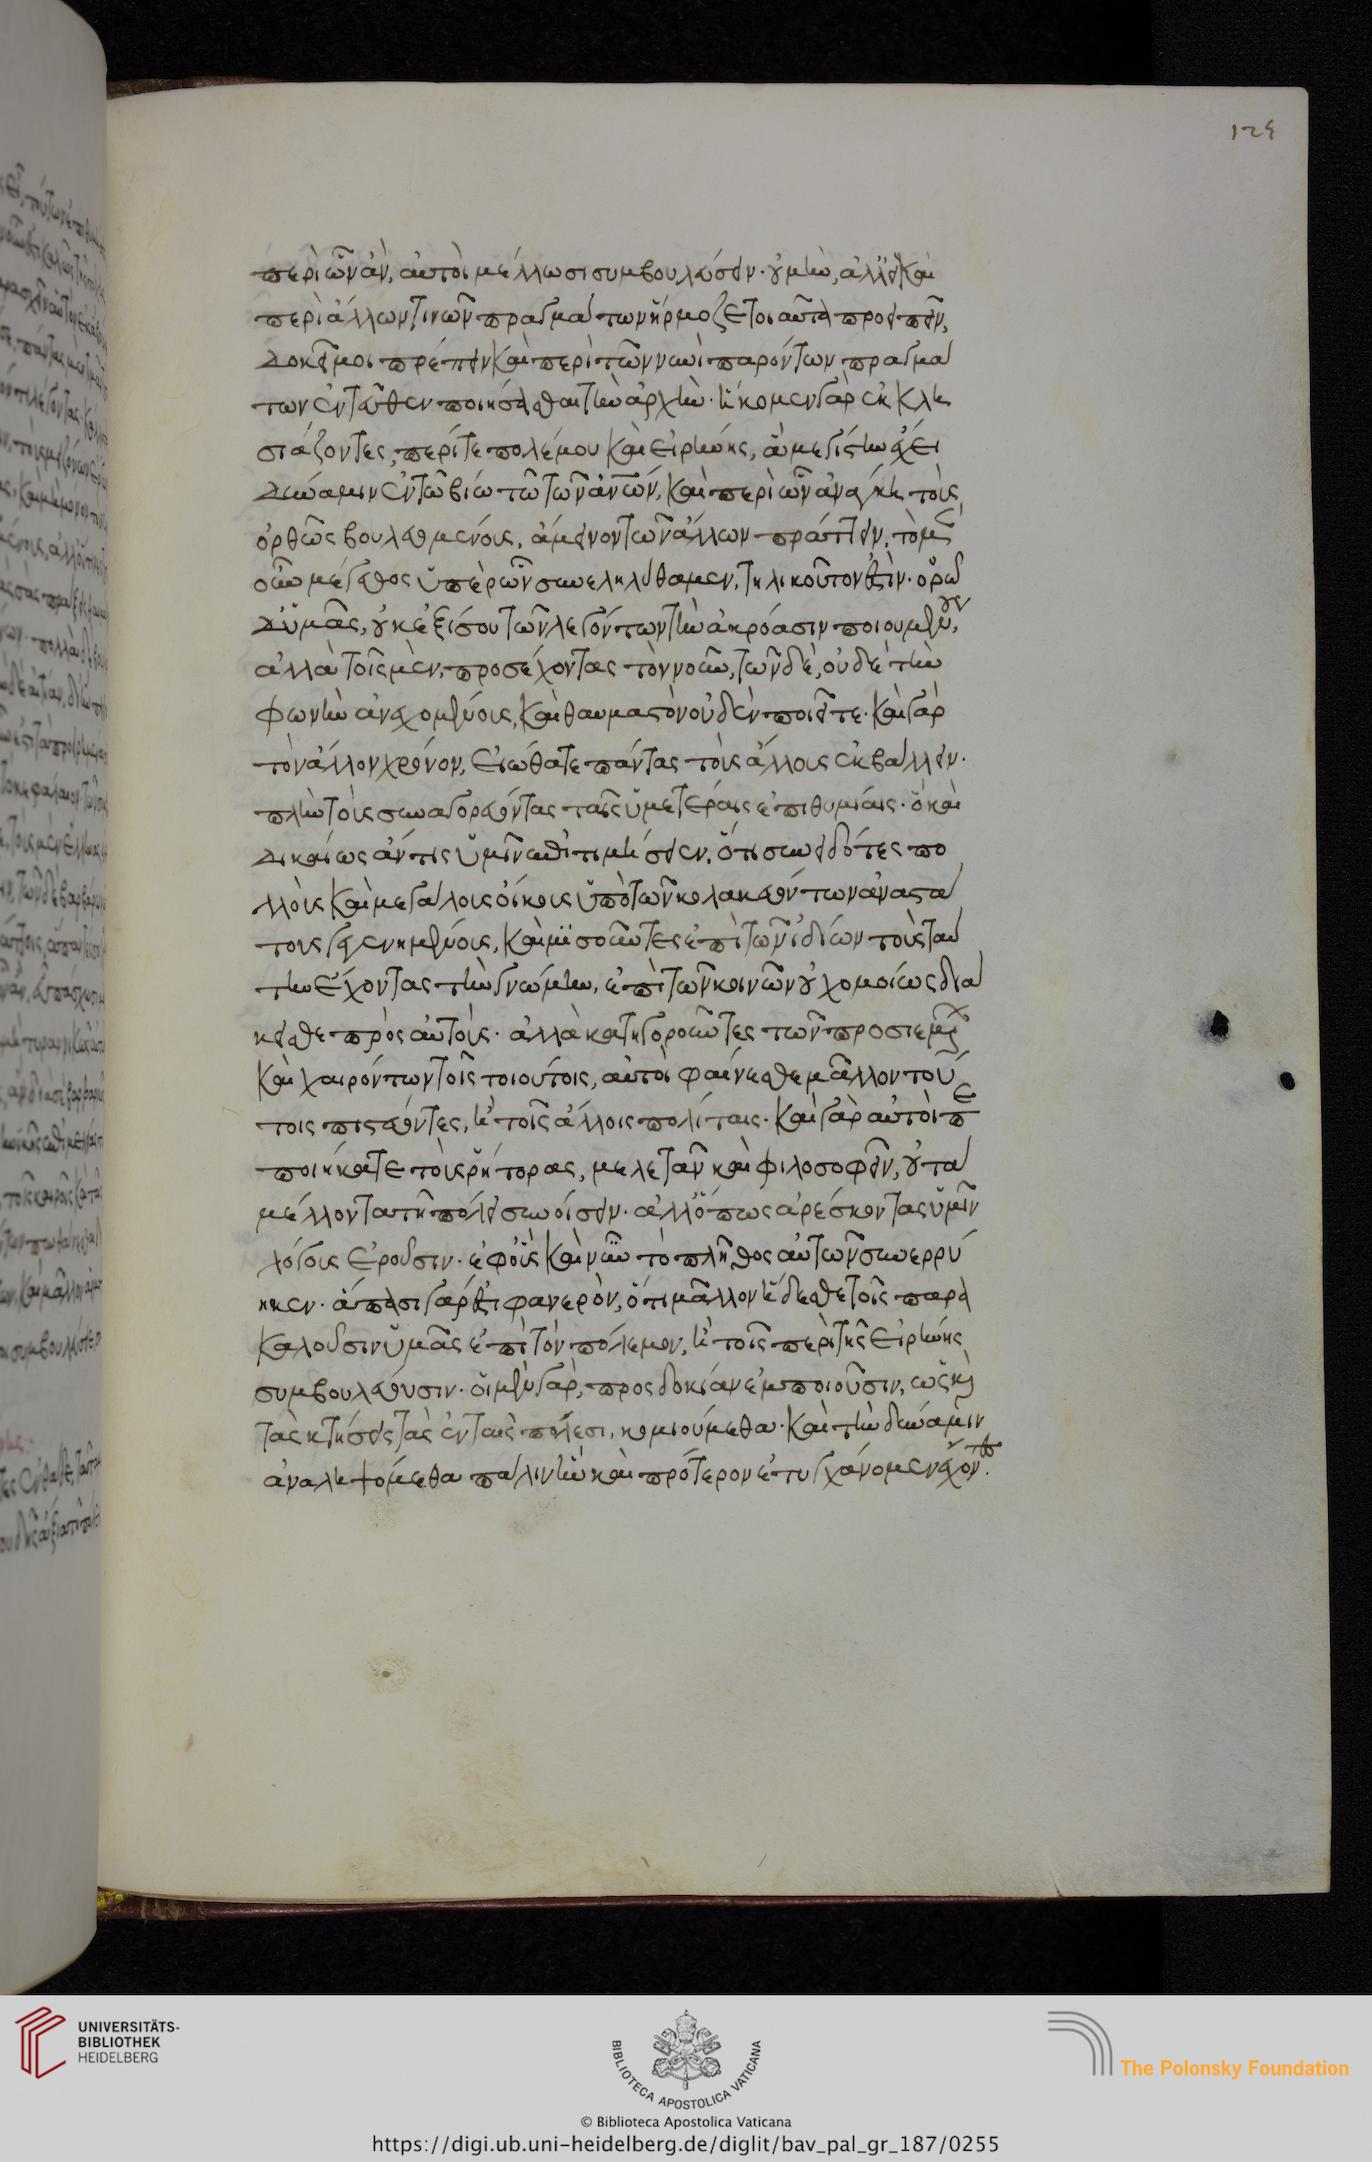 125
περὶ ὧν ἂν, αὐτοὶ μέλλωσι συμβουλεύσειν· οὐ μὴν, ἀλλ' εἰ καὶ
περὶ ἄλλων τινῶν πραγμάτων ἥρμοζε τοιαῦτα προειπεῖν,
δοκεῖ μοι πρέπειν καὶ περὶ τῶν νυνὶ παρόντων πραγμά
των ἐντεῦθεν ποιήσασθαι τὴν ἀρχήν· ἥκομεν γὰρ ἐκκλη
σιάζοντες, περί τε πολέμου καὶ εἰρήνης, ἃ μεγίστην ἔχει
δύναμιν ἐν τῷ βίῳ τῷ τῶν ἀνων, καὶ περὶ ὧν ἀνάγκη τοὺς
ὀρθῶς βουλευομένους, ἄμεινον τῶν ἄλλων πράττειν, τὸ μὲν
οὖν μέγεθος ὑπὲρ ὧν συνεληλύθαμεν, τηλικοῦτόν ἐστιν· ὁρῶ
δ' ὑμᾶς, οὐκ ἐξ ἴσου τῶν λεγόντων τὴν ἀκρόασιν ποιουμένους,
ἀλλὰ τοῖς μὲν, προσέχοντας τὸν νοῦν, τῶν δὲ, οὐδὲ τὴν
φωνὴν ἀνεχομένους, καὶ θαυμαστὸν οὐδὲν ποιεῖτε· καὶ γὰρ
τὸν ἄλλον χρόνον, εἰώθατε πάντας τοὺς ἄλλους ἐκβάλλειν·
πλὴν τοὺς συναγορεύοντας ταῖς ὑμετέραις ἐπιθυμίαις· ὃ καὶ
δικαίως ἄν τις ὑμῖν ἐπιτιμήσειεν, ὅτι συνειδότες πο
λλοὺς καὶ μεγάλους οἴκους ὑπὸ τῶν κολακευόντων ἀναστά
τους γεγενημένους, καὶ μισοῦντες ἐπὶ τῶν ἰδίων τοὺς ταύ
την ἔχοντας τὴν γνώμην, ἐπὶ τῶν κοινῶν οὐχ ὁμοίως διά
κεισθε πρὸς αὐτούς· ἀλλὰ κατηγοροῦντες τῶν προσιεμένων
καὶ χαιρόντων τοῖς τοιούτοις, αὐτοὶ φαίνεσθε μᾶλλον τού
τοις πιστεύοντες, ἢ τοῖς ἄλλοις πολίταις· καὶ γὰρ αὐτοὶ πε
ποιήκατε τοὺς ῥήτορας, μελετᾶν καὶ φιλοσοφεῖν, οὐ τὰ
μέλλοντα τῇ πόλει συνοίσειν· ἀλλ' ὅπως ἀρέσκοντας ὑμῖν
λόγους ἐροῦσιν· ἐφ' οὓς καὶ νῦν τὸ πλῆθος αὐτῶν συνερρύ
ηκεν· ἅπασι γάρ ἐστι φανερὸν, ὅτι μᾶλλον ἥδεσθε τοῖς παρα
καλοῦσιν ὑμᾶς ἐπὶ τὸν πόλεμον, ἢ τοῖς περὶ τῆς εἰρήνης
συμβουλεύουσιν· οἱ μὲν γὰρ, προσδοκίαν ἐμποιοῦσιν, ὡς καὶ
τὰς κτήσεις τὰς ἐν ταῖς πόλεσι, κομιούμεθα· καὶ τὴν δύναμιν
ἀναληψόμεθα πάλιν ἣν καὶ πρότερον ἐτυγχάνομεν ἔχοντες.
UNIVERSITÄTS-
BIBLIOTHEK
HEIDELBERG
BIBLIOTECA APOSTOLICA VATICANA
The Polonsky Foundation
© Biblioteca Apostolica Vaticana
https://digi.ub.uni-heidelberg.de/diglit/bav_pal_gr_187/0255